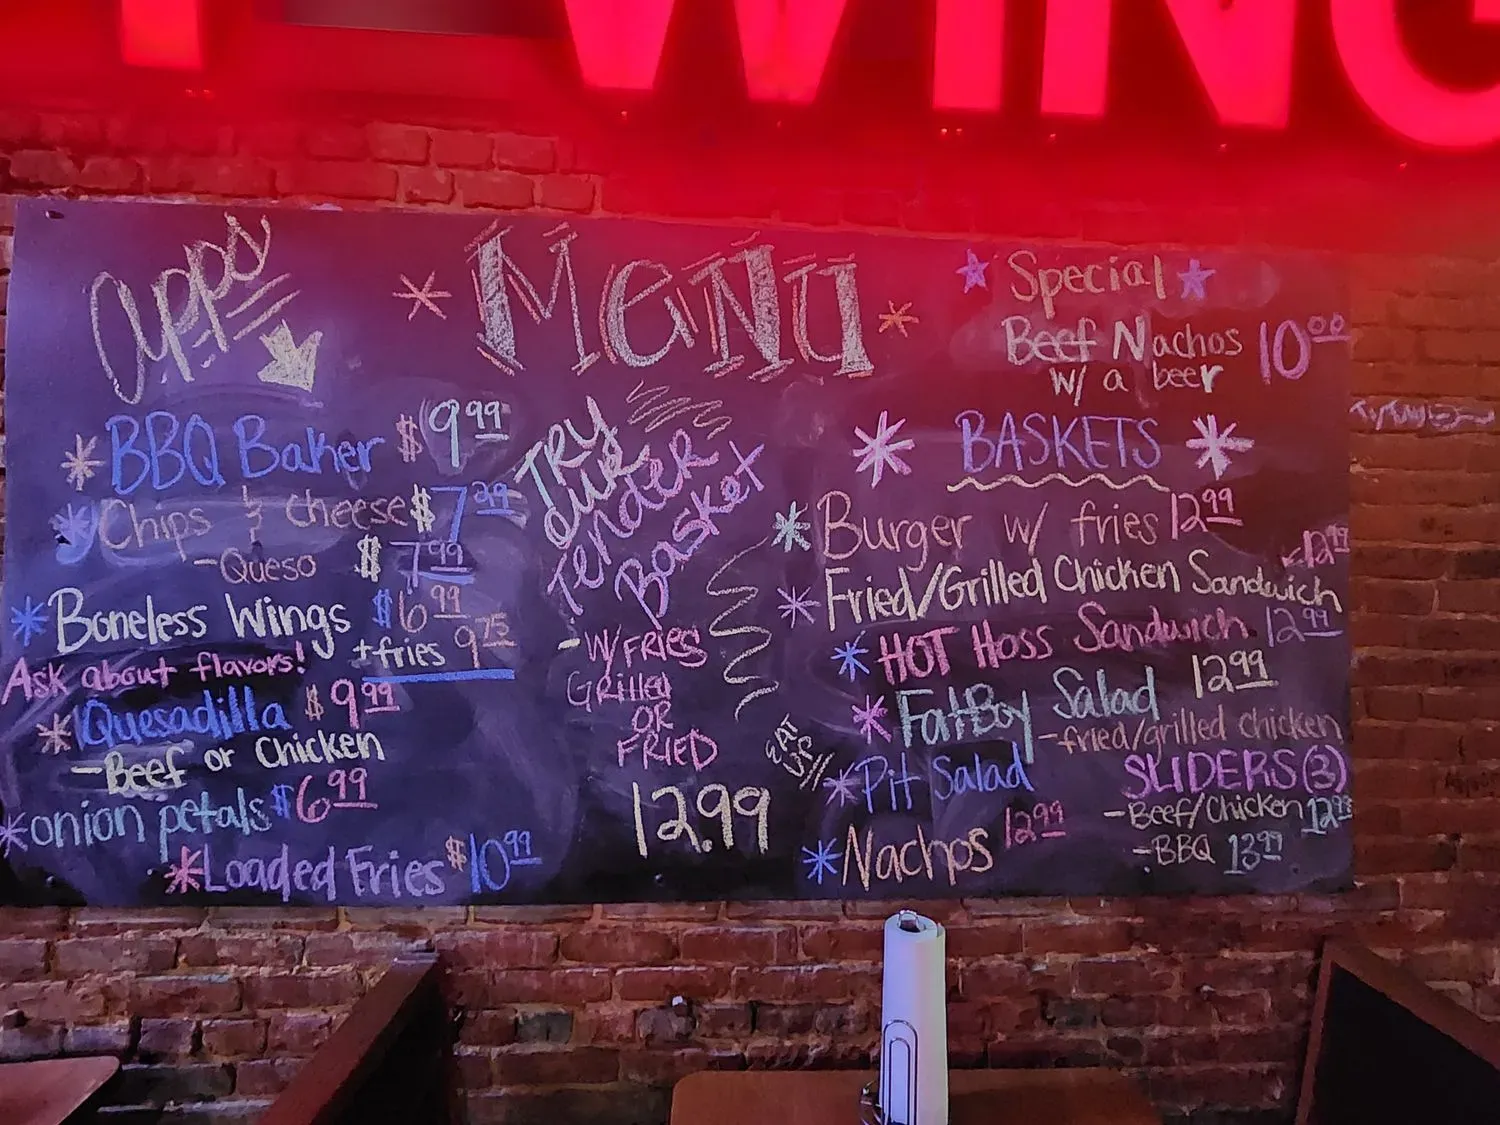 WING
Apps
BBQ Baker $9.99
Chips & cheese $7.29
-Queso $7.99
Boneless Wings $6.99
+fries 9.75
Ask about flavors!
Quesadilla $9.99
-Beef or Chicken
onion petals $6.99
Loaded Fries $10.99
Menu
TRY
OUR
Tender
Basket
-W/FRIES
GRilled
OR
FRIED
12.99
EAT
UP!!
Special
Beef Nachos 10.00
w/ a beer
BASKETS
Burger w/ fries 12.99
Fried/Grilled Chicken Sandwich 12.99
HOT Hoss Sandwich 12.99
FatBoy Salad 12.99
-fried/grilled chicken
Pit Salad
Nachos 12.99
SLIDERS (3)
-Beef/Chicken 12.99
-BBQ 13.99